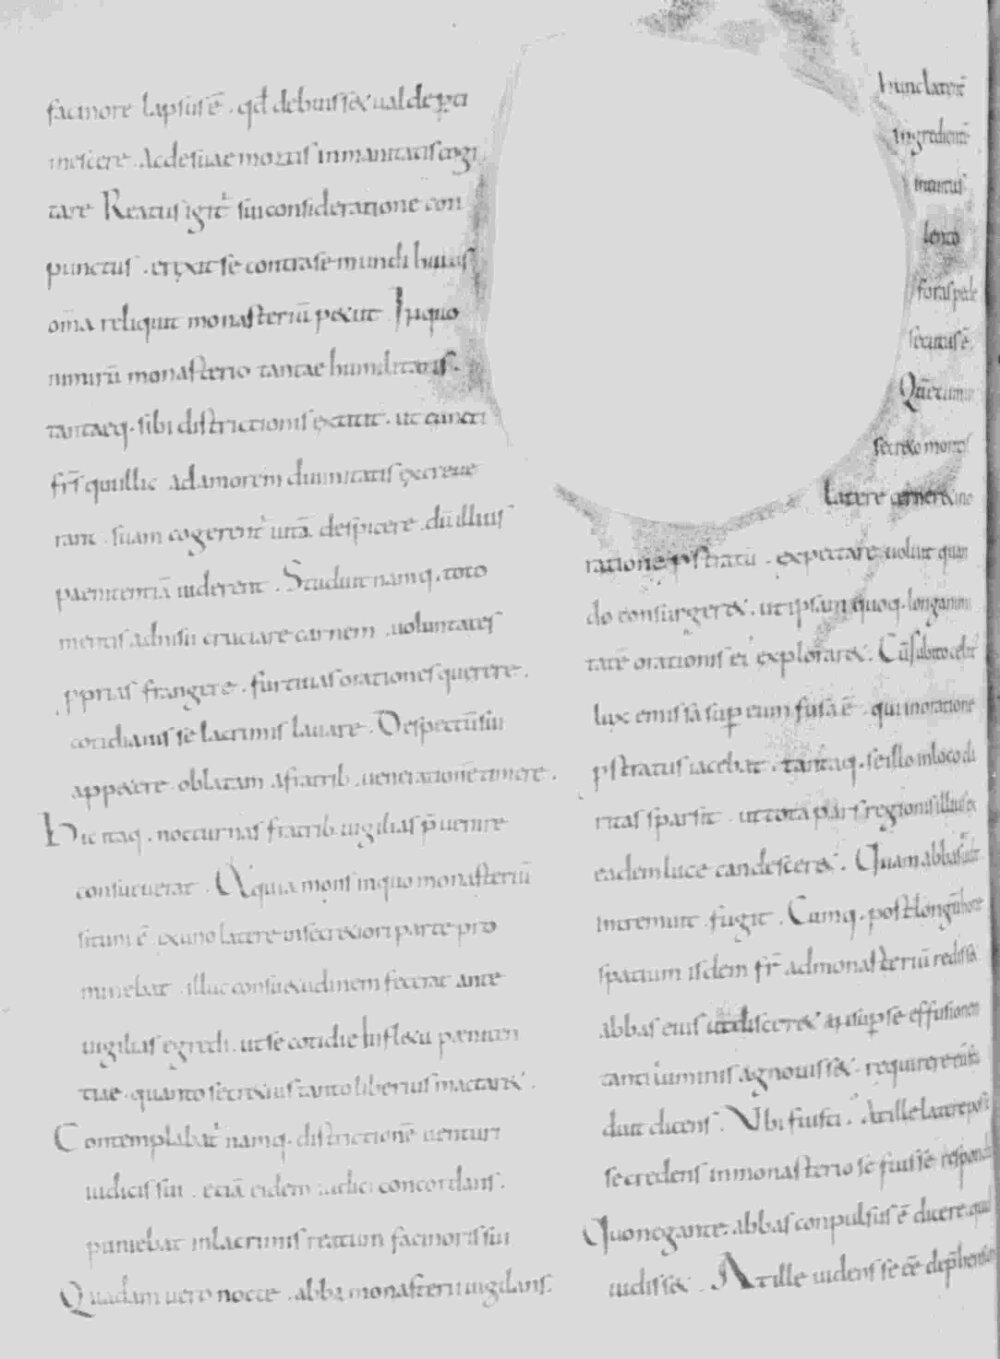 facinore lapsus ē . qđ debuisset ualde ꝑti
mescere . Ac de suae mortis inmanitatis cogi
tare Reatus igit᷑ sui consideratione con
punctus . erexit se contra se mundi huius
om̄a reliquit monasteriū petiit . In quo
nimirū monasterio tantae humilitatis .
tantaeq . sibi districtionis extitit . ut cuncti
fr̄s qui illic ad amorem diuinitatis excreue
rant . suam cogerent᷑ uitā despicere . dū illius
paenitentiā uiderent . Studuit namq . toto
mentis adnisu cruciare carnem . uoluntates
pprias frangere . furtiuas orationes querere .
cotidianis se lacrimis lauare . Despectū sui
appetere . oblatam a fratrib . uenerationē timere .
Hic itaq . nocturnas fratrib uigilias p̄uenire
consueuerat . Et quia mons in quo monasteriū
situm ē . ex uno latere in secretiori parte pro
minebat . illuc consuetudinem fecerat ante
uigilias egredi . ut se cotidie in fletu paeniten
tiae . quanto secretius tanto liberius mactaret .
Contemplabat᷑ namq . districtionē uenturi
iudicis sui . etiā eidem iudici concordans .
puniebat in lacrimis reatum facinoris sui
Quadam uero nocte . abba monasterii uigilans .
hunc latent᷑
ingredient᷑
intuitus
lento
foras pede
secutus ē .
Quē cum in
secreto montis
latere cerneret in o
ratione pstratū . expectare uoluit quan
do consurgeret . ut ipsam quoq . longanimi
tatē orationis ei᷑ exploraret . Cū subito celit᷑
lux emissa suꝑ eum fusa ē . qui in oratione
pstratus iacebat . tantaq . se illo in loco cla
ritas sparsit . ut tota pars regionis illius ex
eadem luce candesceret . Quam abbas ut uidit
intremuit . fugit . Cumq . post longū hore
spatium isdem fr̄ ad monasteriū redisset
abbas eius ut disceret an suꝑ se effusionem
tanti luminis agnouisset . requirere eū stu
duit dicens . Ubi fuisti . At ille latere posse
se credens in monasterio se fuisse respondit
Quo negante . abbas conpulsus ē dicere quid
uidisset . At ille uidens se eē dep̄hensum